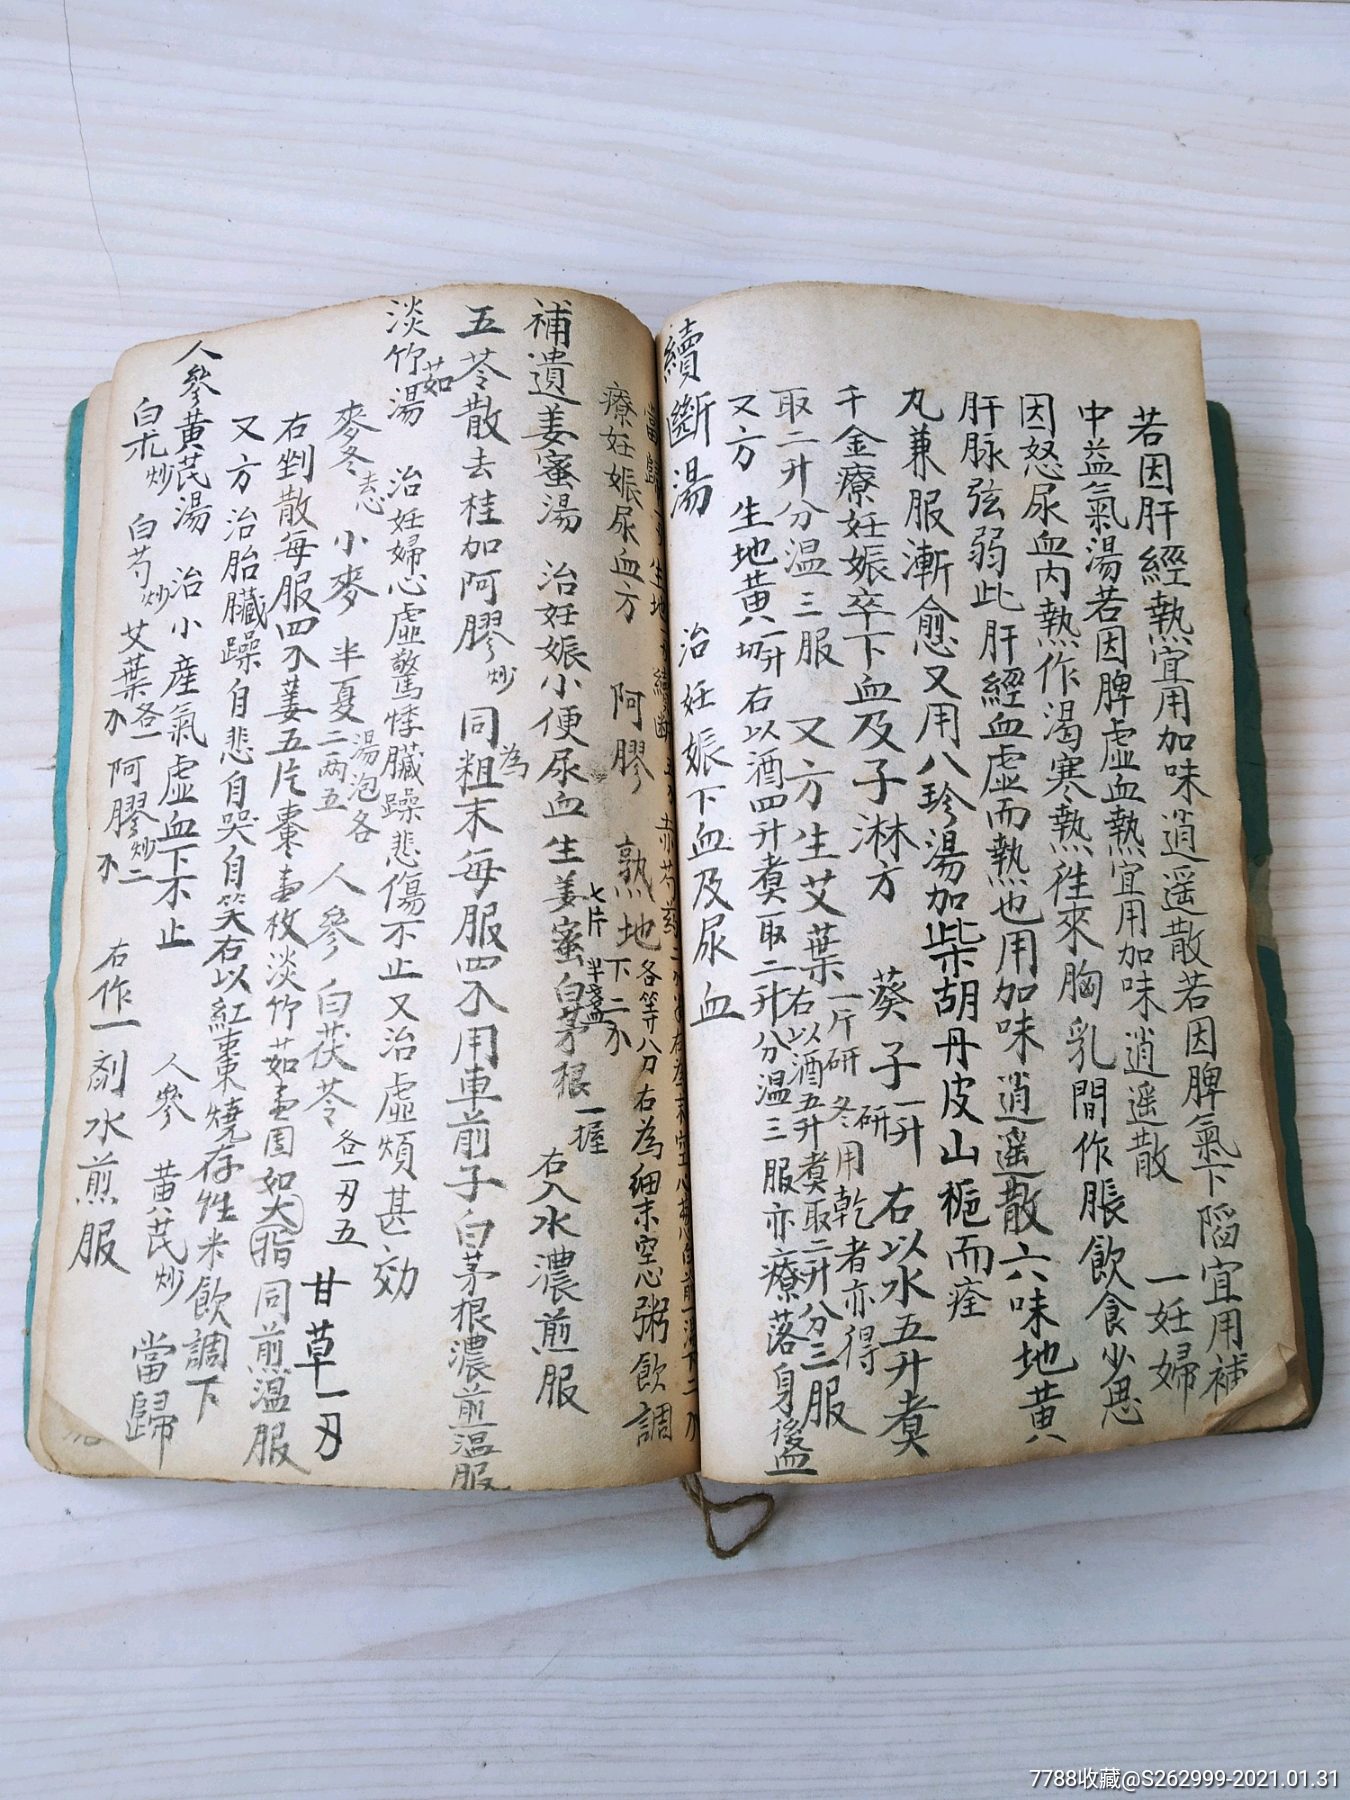 若因肝經熱宜用加味逍遥散若因脾氣下陷宜用補
中益氣湯若因脾虛血熱宜用加味逍遥散 一妊婦
因怒尿血内熱作渴寒熱徃來胸乳間作脹飲食少思
肝脉弦弱此肝經血虛而熱也用加味逍遥散六味地黄
丸兼服漸愈又用八珍湯加柴胡丹皮山梔而痊
千金療妊娠卒下血及子淋方 葵子一升研 右以水五升煑
取二升分温三服 又方生艾葉一斤研冬用乾者亦得右以酒五升煑取二升分三服
又方 生地黄一升切 右以酒四升煑取二升分温三服亦療落身後血
續斷湯 治妊娠下血及尿血
當歸 生地 續斷 赤芍药
療妊娠尿血方 阿膠 熟地各等分右為細末空心粥飲調下二不
補遺姜蜜湯 治妊娠小便尿血 生姜七片蜜半盞白茅根一握 右入水濃煎服
五苓散去桂加阿膠炒 同為粗末每服四不用車前子白茅根濃煎温服
淡竹茹湯 治妊婦心虛驚悸臟躁悲傷不止又治虛煩甚効
麥冬去心 小麥 半夏湯泡各二两五 人參 白茯苓各一刄五 甘草一刄
右剉散每服四不姜五片棗壹枚淡竹茹壹團如大指同煎温服
又方治胎臟躁自悲自哭自笑右以紅棗燒存性米飲調下
人參黄芪湯 治小產氣虛血下不止 人參 黄芪炒 當歸
白术炒 白芍炒 艾葉各一不 阿膠炒二不 右作一剤水煎服
7788收藏@S262999-2021.01.31